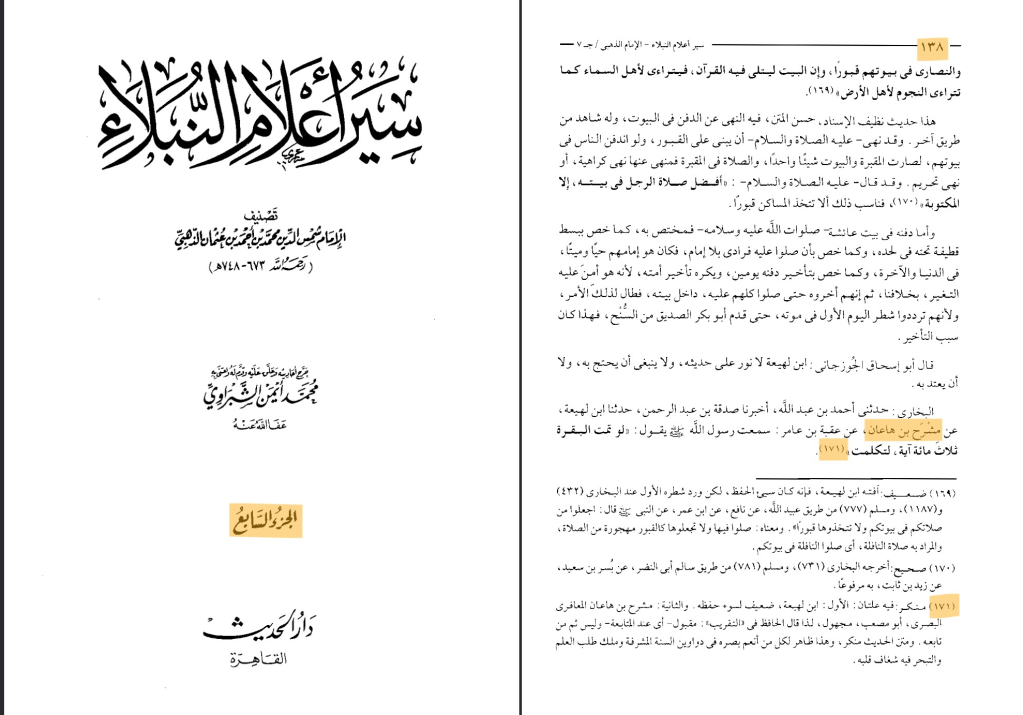 سير أعلام النبلاء
تصنيف
الإمام شمس الدين محمد بن أحمد بن عثمان الذهبي
(رحمه الله ٦٧٣-٧٤٨هـ)
خرج أحاديثه وعلق عليه وقدم له واعتنى به
محمد أيمن الشبراوي
عفا الله عنه
الجزء السابع
دار الحديث
القاهرة
١٣٨ سير أعلام النبلاء - الإمام الذهبى / جـ ٧
والنصارى فى بيوتهم قبورًا، وإن البيت ليتلى فيه القرآن، فيتراءى لأهل السماء كما
تتراءى النجوم لأهل الأرض» (١٦٩).
هذا حديث نظيف الإسناد، حسن المتن، فيه النهى عن الدفن فى البيوت، وله شاهد من
طريق آخر. وقد نهى- عليه الصلاة والسلام- أن يبنى على القبور، ولو اندفن الناس فى
بيوتهم، لصارت المقبرة والبيوت شيئًا واحدًا، والصلاة فى المقبرة فمنهى عنها نهى كراهية، أو
نهى تحريم. وقد قال- عليه الصلاة والسلام- : «أفضل صلاة الرجل فى بيته، إلا
المكتوبة» (١٧٠)، فناسب ذلك ألا تتخذ المساكن قبورًا.
وأما دفنه فى بيت عائشة- صلوات اللَّه عليه وسلامه- فمختص به، كما خص ببسط
قطيفة تحته فى لحده، وكما خص بأن صلوا عليه فرادى بلا إمام، فكان هو إمامهم حيًا وميتًا،
فى الدنيا والآخرة، وكما خص بتأخير دفنه يومين، ويكره تأخير أمته، لأنه هو أمن عليه
التغير، بخلافنا، ثم إنهم أخروه حتى صلوا كلهم عليه، داخل بيته، فطال لذلك الأمر،
ولأنهم ترددوا شطر اليوم الأول فى موته، حتى قدم أبو بكر الصديق من السُّنْح، فهذا كان
سبب التأخير.
قال أبو إسحاق الجُوزجانى: ابن لهيعة لا نور على حديثه، ولا ينبغى أن يحتج به، ولا
أن يعتد به.
البخارى: حدثنى أحمد بن عبد اللَّه، أخبرنا صدقة بن عبد الرحمن، حدثنا ابن لهيعة،
عن مِشْرَح بن هاعان، عن عقبة بن عامر: سمعت رسول اللَّه ﷺ يقول: «لو تمت البقرة
ثلاث مائة آية، لتكلمت» (١٧١).
(١٦٩) ضعيف: آفته ابن لهيعة، فإنه كان سيئ الحفظ، لكن ورد شطره الأول عند البخارى (٤٣٢)
و(١١٨٧)، ومسلم (٧٧٧) من طريق عبيد اللَّه، عن نافع، عن ابن عمر، عن النبى ﷺ قال: اجعلوا من
صلاتكم فى بيوتكم ولا تتخذوها قبورًا». ومعناه: صلوا فيها ولا تجعلوها كالقبور مهجورة من الصلاة،
والمراد به صلاة النافلة، أى صلوا النافلة فى بيوتكم.
(١٧٠) صحيح: أخرجه البخارى (٧٣١)، ومسلم (٧٨١) من طريق سالم أبى النضر، عن بُسر بن سعيد،
عن زيد بن ثابت، به مرفوعًا.
(١٧١) منكر: فيه علتان: الأول: ابن لهيعة، ضعيف لسوء حفظه. والثانية: مشرح بن هاعان المعافرى
البصرى، أبو مصعب، مجهول، لذا قال الحافظ فى «التقريب»: مقبول- أى عند المتابعة- وليس ثم من
تابعه. ومتن الحديث منكر، وهذا ظاهر لكل من أنعم بصره فى دواوين السنة المشرفة وملك طلب العلم
والتبحر فيه شغاف قلبه.